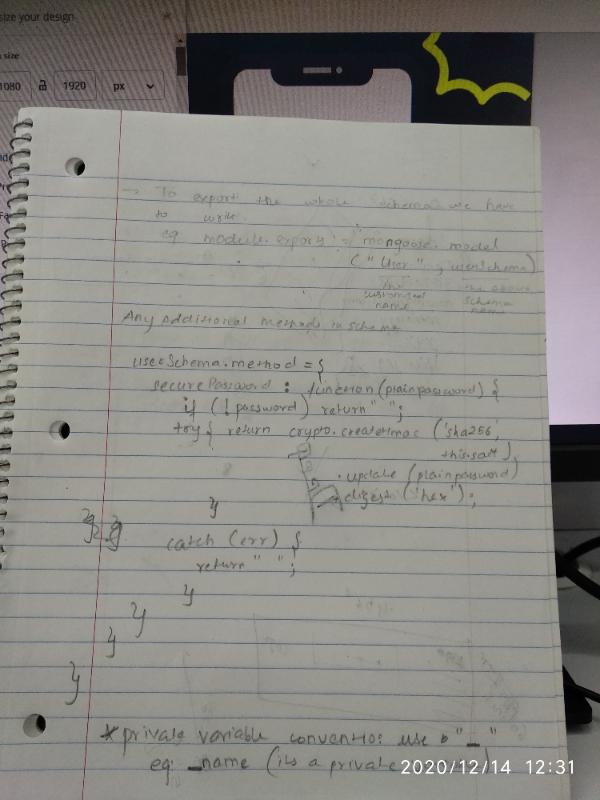 size your design
size
1080 1920 px
→ To export the whole schema we have
to write
eg module.exports = mongoose.model
("User", userSchema)
the the above
customised schema
name name
Any additional methods in schema
userSchema.method = {
securePassword : function(plainpassword) {
if (!password) return" ";
try{ return crypto.createHmac ('sha256',
this.salt)
.update (plainpassword)
digest('hex');
}
catch (err) {
return " ";
}
}
}
}
* private variable convention: use "_"
eg: _name (its a private
2020/12/14 12:31